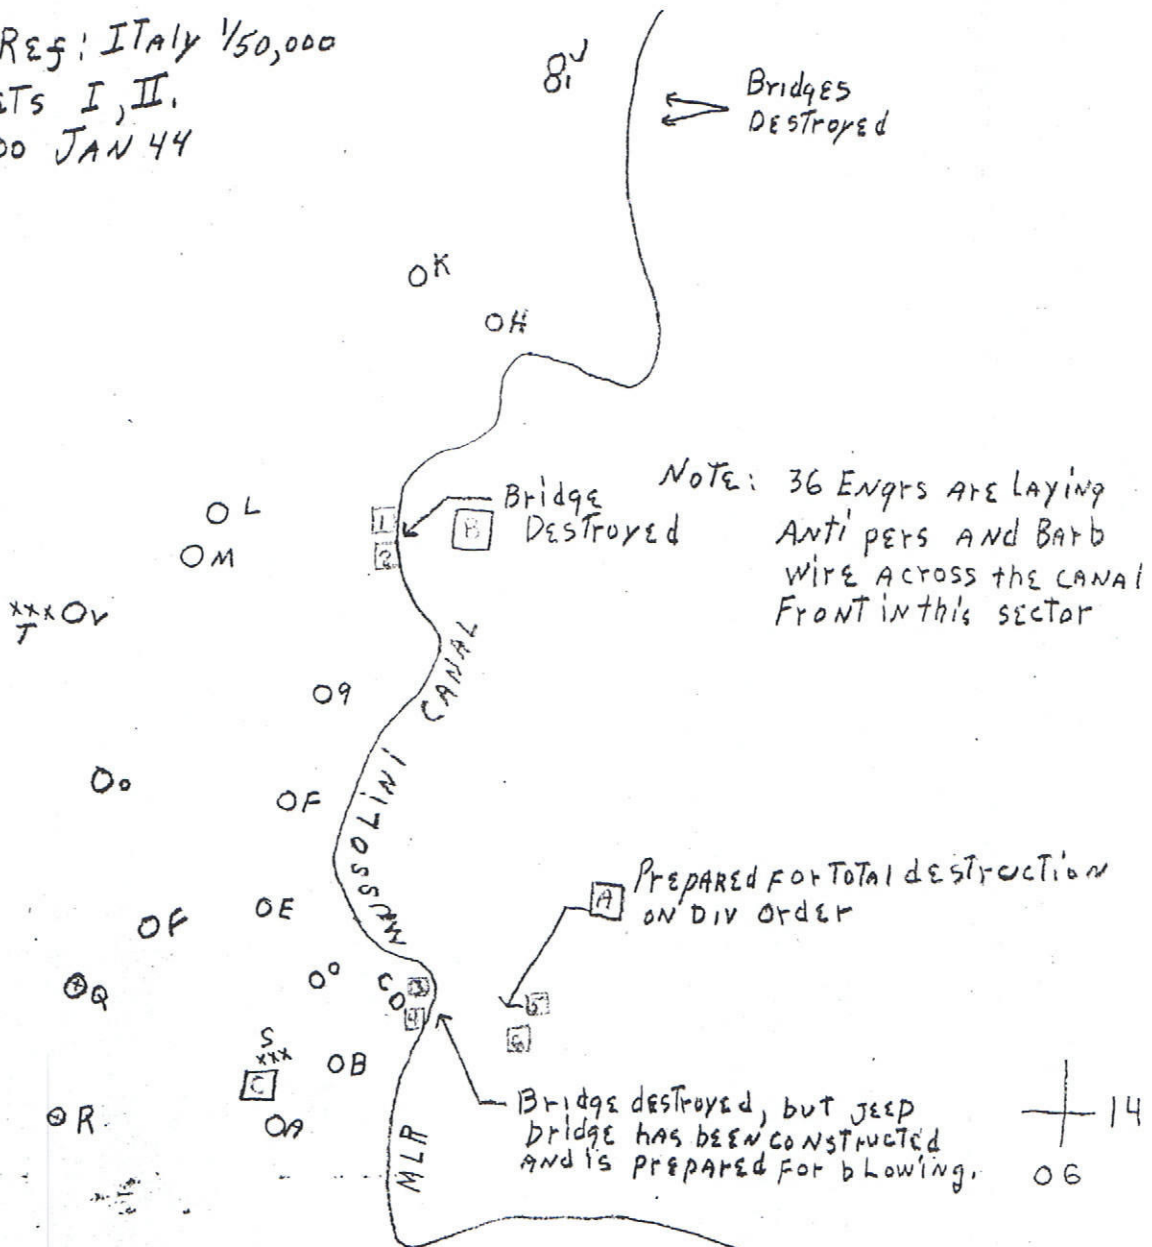 Ref: ITALY 1/50,000
ETS I, II.
00 JAN 44
8 J
Bridges
Destroyed
OK
OH
Bridge
Destroyed
NOTE: 36 Engrs Are Laying
Anti pers And Barb
Wire Across the CANAl
Front in this sector
1
2
B
O L
O M
xxx OV
T
O9
CANAL
MUSSOLINI
Oo
OF
A
Prepared for Total destruction
on Div Order
OE
OF
Q
Oo
CO
3
4
5
6
S
xxx
C
OB
R
OA
MLR
Bridge destroyed, but Jeep
bridge has been constructed
And is prepared for blowing.
14
06